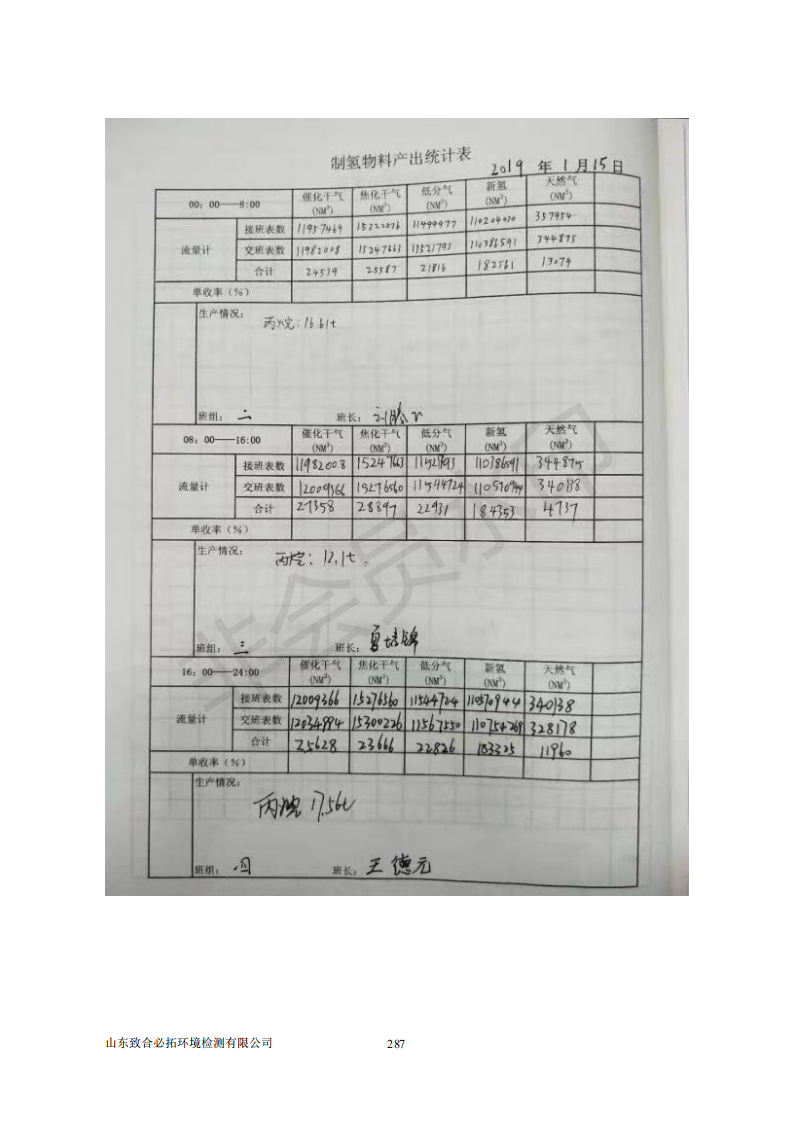 制氢物料产出统计表
2019 年 1 月 15 日
00：00——8:00 催化干气(NM³) 焦化干气(NM³) 低分气(NM³) 新氢(NM³) 天然气(NM³)
流量计
接班表数 11957469 15222076 11499977 110204030 357954
交班表数 11982008 15247663 11521793 110386591 344875
合计 24539 25587 21816 182561 13079
单收率（%）
生产情况：
丙烷：16.61t
班组： 二 班长：
08：00——16:00 催化干气(NM³) 焦化干气(NM³) 低分气(NM³) 新氢(NM³) 天然气(NM³)
流量计
接班表数 11982008 15247663 11521793 110386591 344875
交班表数 12009366 15276560 11544724 110570944 340138
合计 27358 28897 22931 184353 4737
单收率（%）
生产情况：
丙烷：12.1t.
班组： 三 班长： 夏培锦
16：00——24:00 催化干气(NM³) 焦化干气(NM³) 低分气(NM³) 新氢(NM³) 天然气(NM³)
流量计
接班表数 12009366 15276560 11544724 110570944 340138
交班表数 12034994 15300226 11567550 110754269 328178
合计 25628 23666 22826 183325 11960
单收率（%）
生产情况：
丙烷 17.56t
班组： 四 班长： 王德元
非会员水印
山东致合必拓环境检测有限公司 287